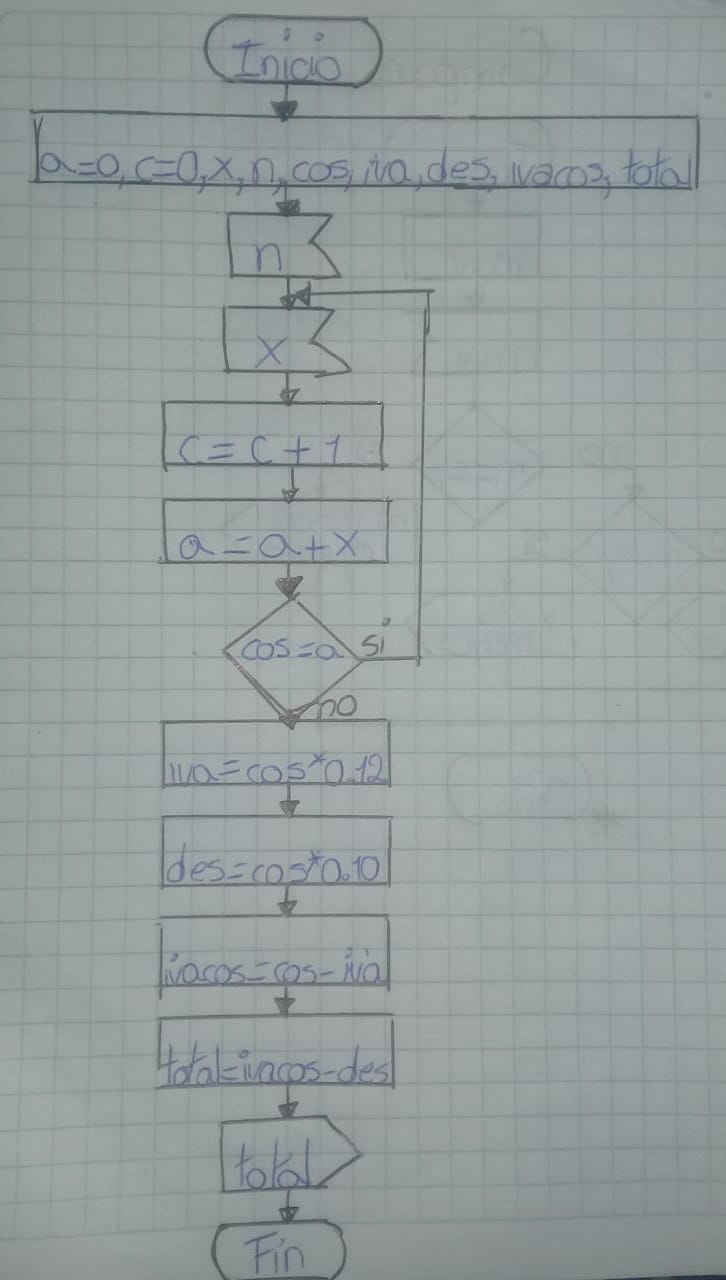 Inicio
a=0, c=0, x, n, cos, iva, des, ivacos, total
n
x
c = c + 1
a = a + x
cos=a si
no
iva=cos*0.12
des=cos*0.10
ivacos=cos-iva
total=ivacos-des
total
Fin